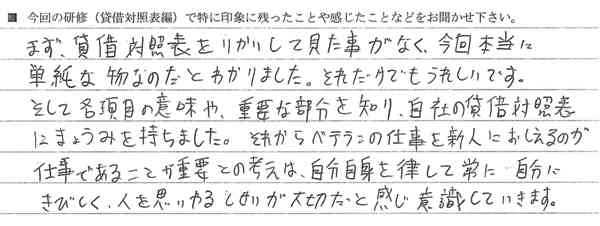 ■ 今回の研修（貸借対照表編）で特に印象に残ったことや感じたことなどをお聞かせ下さい。
まず、貸借対照表をりかいして見た事がなく、今回本当に
単純な物なのだとわかりました。それだけでもうれしいです。
そして各項目の意味や、重要な部分を知り、自社の貸借対照表
にきょうみを持ちました。それからベテランの仕事を新人におしえるのが
仕事であることが重要との考えは、自分自身を律して常に自分に
きびしく、人を思いやる 力が大切だと感じ意識していきます。